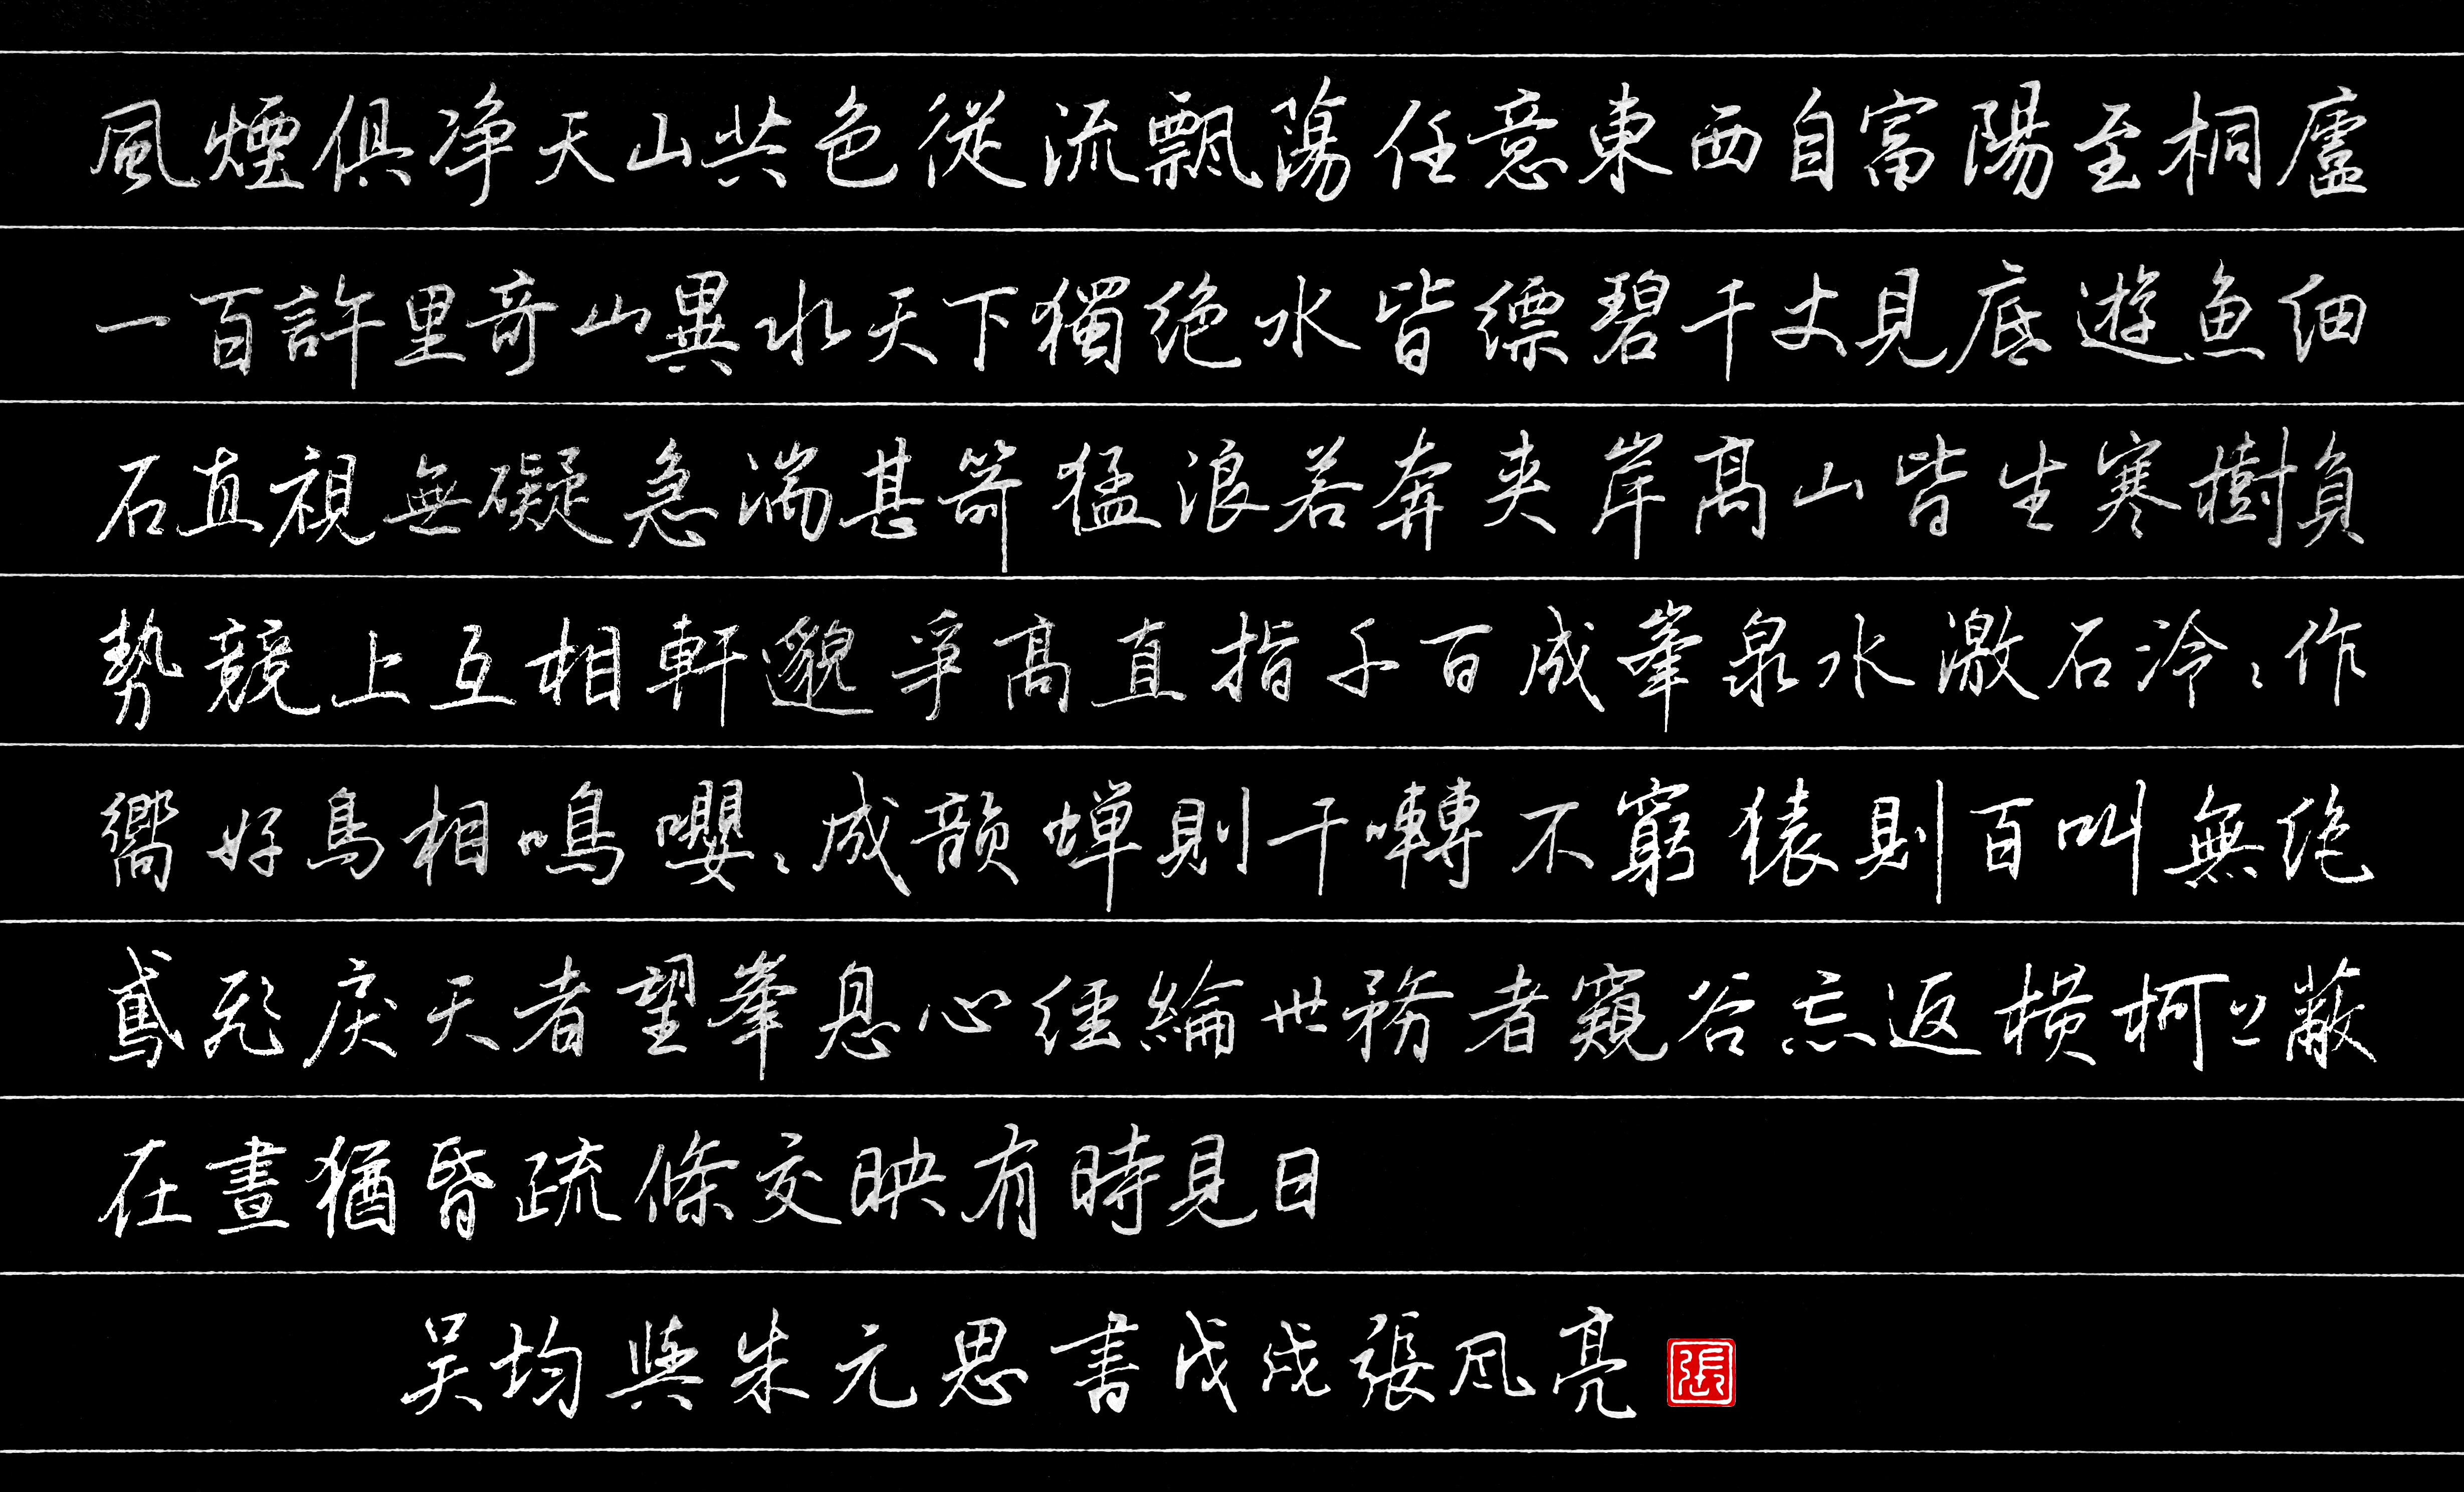 風煙俱净天山共色從流飄蕩任意東西自富陽至桐廬
一百許里奇山異水天下獨絶水皆縹碧千丈見底遊魚細
石直視無礙急湍甚箭猛浪若奔夾岸高山皆生寒樹負
勢競上互相軒邈爭高直指千百成峯泉水激石泠〻作
嚮好鳥相鳴嚶〻成韻蟬則千囀不窮猿則百叫無絶
鳶飛戾天者望峯息心經綸世務者窺谷忘返橫柯上蔽
在晝猶昏疏條交映有時見日
吴均與朱元思書戊戌張風亮
張